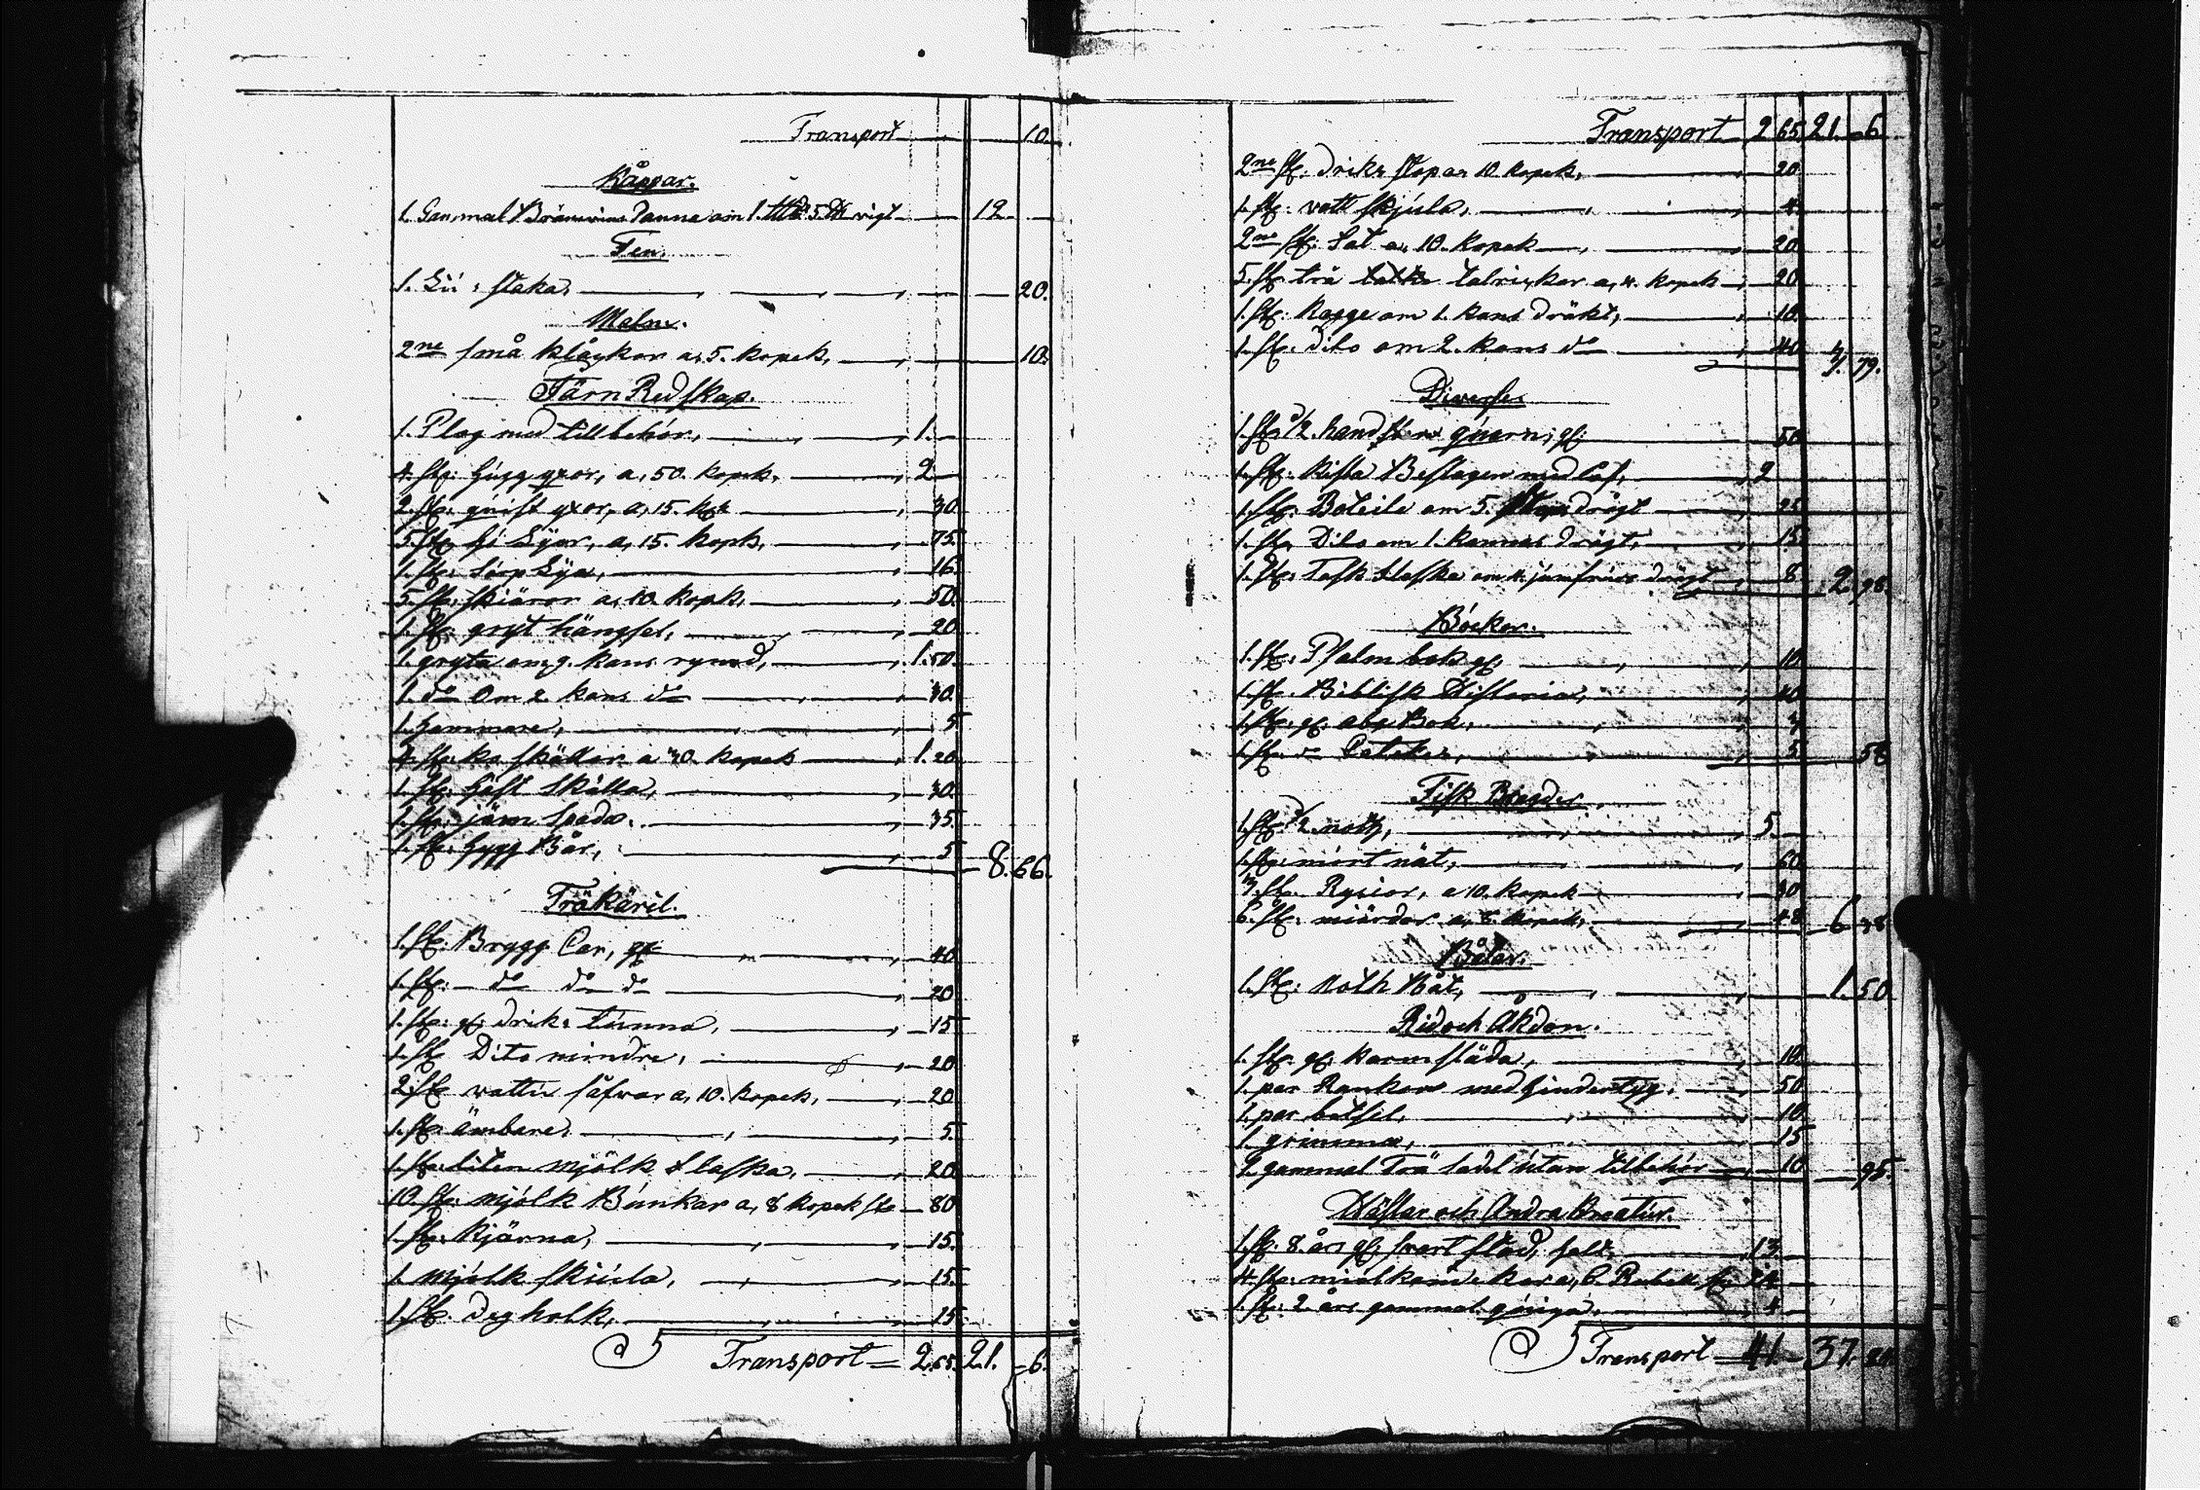 Transport 10.
Kåppar.
1. Gammal Bränvins Panna om 1. 5 ℔ vigt 12
Ten.
1. Liu staka, 20.
Malm.
2ne små klåckor a, 5. kopek, 10.
Järn Redskap.
1. Plog med tillbehör, 1.
4. st: hugg yxor, a, 50. kopek, 2
2. st: quist yxor, a, 15. kopk 30.
5. st: Lijar, a, 15. kopk, 75.
1. st: Lija, 16.
5. st: skiäror a, 10. kopk, 50.
1. st: gryt hängsel, 20
1. gryta om 9. kans rymd, 1.50.
1. do Om 2. kans do 30.
1. hammare, 5
4. st: ko skällor a 30. kopek 1.20
1. st: häst skälla, 30.
1. st: järn spada. 35.
1. st: Bår, 5 8.66.
Träkäril.
1. st: Brygg Car, gl: 40
1. st: do do do 20
1. st: gl: dricks tunna, 15
1. st Dito mindre, 20
2. st vattu såfvar a, 10. kopek, 20
1. st: ämbare, 5.
1. st: liten mjölk flaska, 20
10. st: mjölk Bunkar a, 8 kopek st 80
1. st: Kjärna, 15.
1. mjölk skiula, 15.
1. st: deg holk, 15
Transport 2.65. 21. 6.
Transport 2 65 21. 6
2ne st: dricks stopar 10 kopek, 20
1. st: vatt skjula, 4
2ne st: fat a, 10. kopek 20
5. st trä talrickar a, 4. kopek 20
1. st: Kagge om 1. kans dräkt, 10.
1. st: dito om 2. kans do 40 3. 79.
Diverse
1. st: 1/2 hand sten quarn, gl: 50
1. st: Kista Beslagen med Lås, 2
1. st: Boteile om 5. drägt 25
1. st: Dito om 1. kannas drägt, 15
1. st: flaska om 4. jumfrurs drägt 8 2. 98.
Böcker.
1. st: Psalm bok gl: 10
1. st: Biblisk Historia, 40
1. st: gl: abc Bok, 3
1. st: Cateches, 5 58
Fisk Bragder
1. st: 1/2 noth, 5.
1. st: mört nät, 60
3. st: Rysior, a 10. kopek 30
6. st: miärdor a, 8. kopek, 48 6 38
Båtar.
1. st: Noth Båt, 1.50
Rid och Åkdon.
1. st: gl: karm släda, 10
1. par Rankor med hindertyg. 50
1. par betsel, 10
1. grimma, 15
1. gammal Trä sadel utan tilbehör 10 95.
Hästar och Andra Creatur.
1. st: 8. års gl: svart stod, 13.
4. st: miolkande kor a, 6. Rubel st 24
1. st: 2. års gammal quiga. 4
Transport 41. 37. 24.